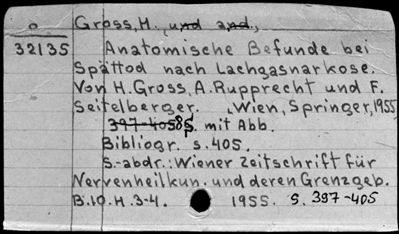 a Gross, H., und and.,
32135 Anatomische Befunde bei
Spättod nach Lachgasnarkose.
Von H. Gross, A. Rupprecht und F.
Seitelberger. Wien, Springer, 1955
397-405 8°. mit Abb.
Bibliogr. s. 405.
S.-abdr.: Wiener Zeitschrift für
Nervenheilkun. und deren Grenzgeb.
B.10. H. 3-4. 1955. S. 397-405